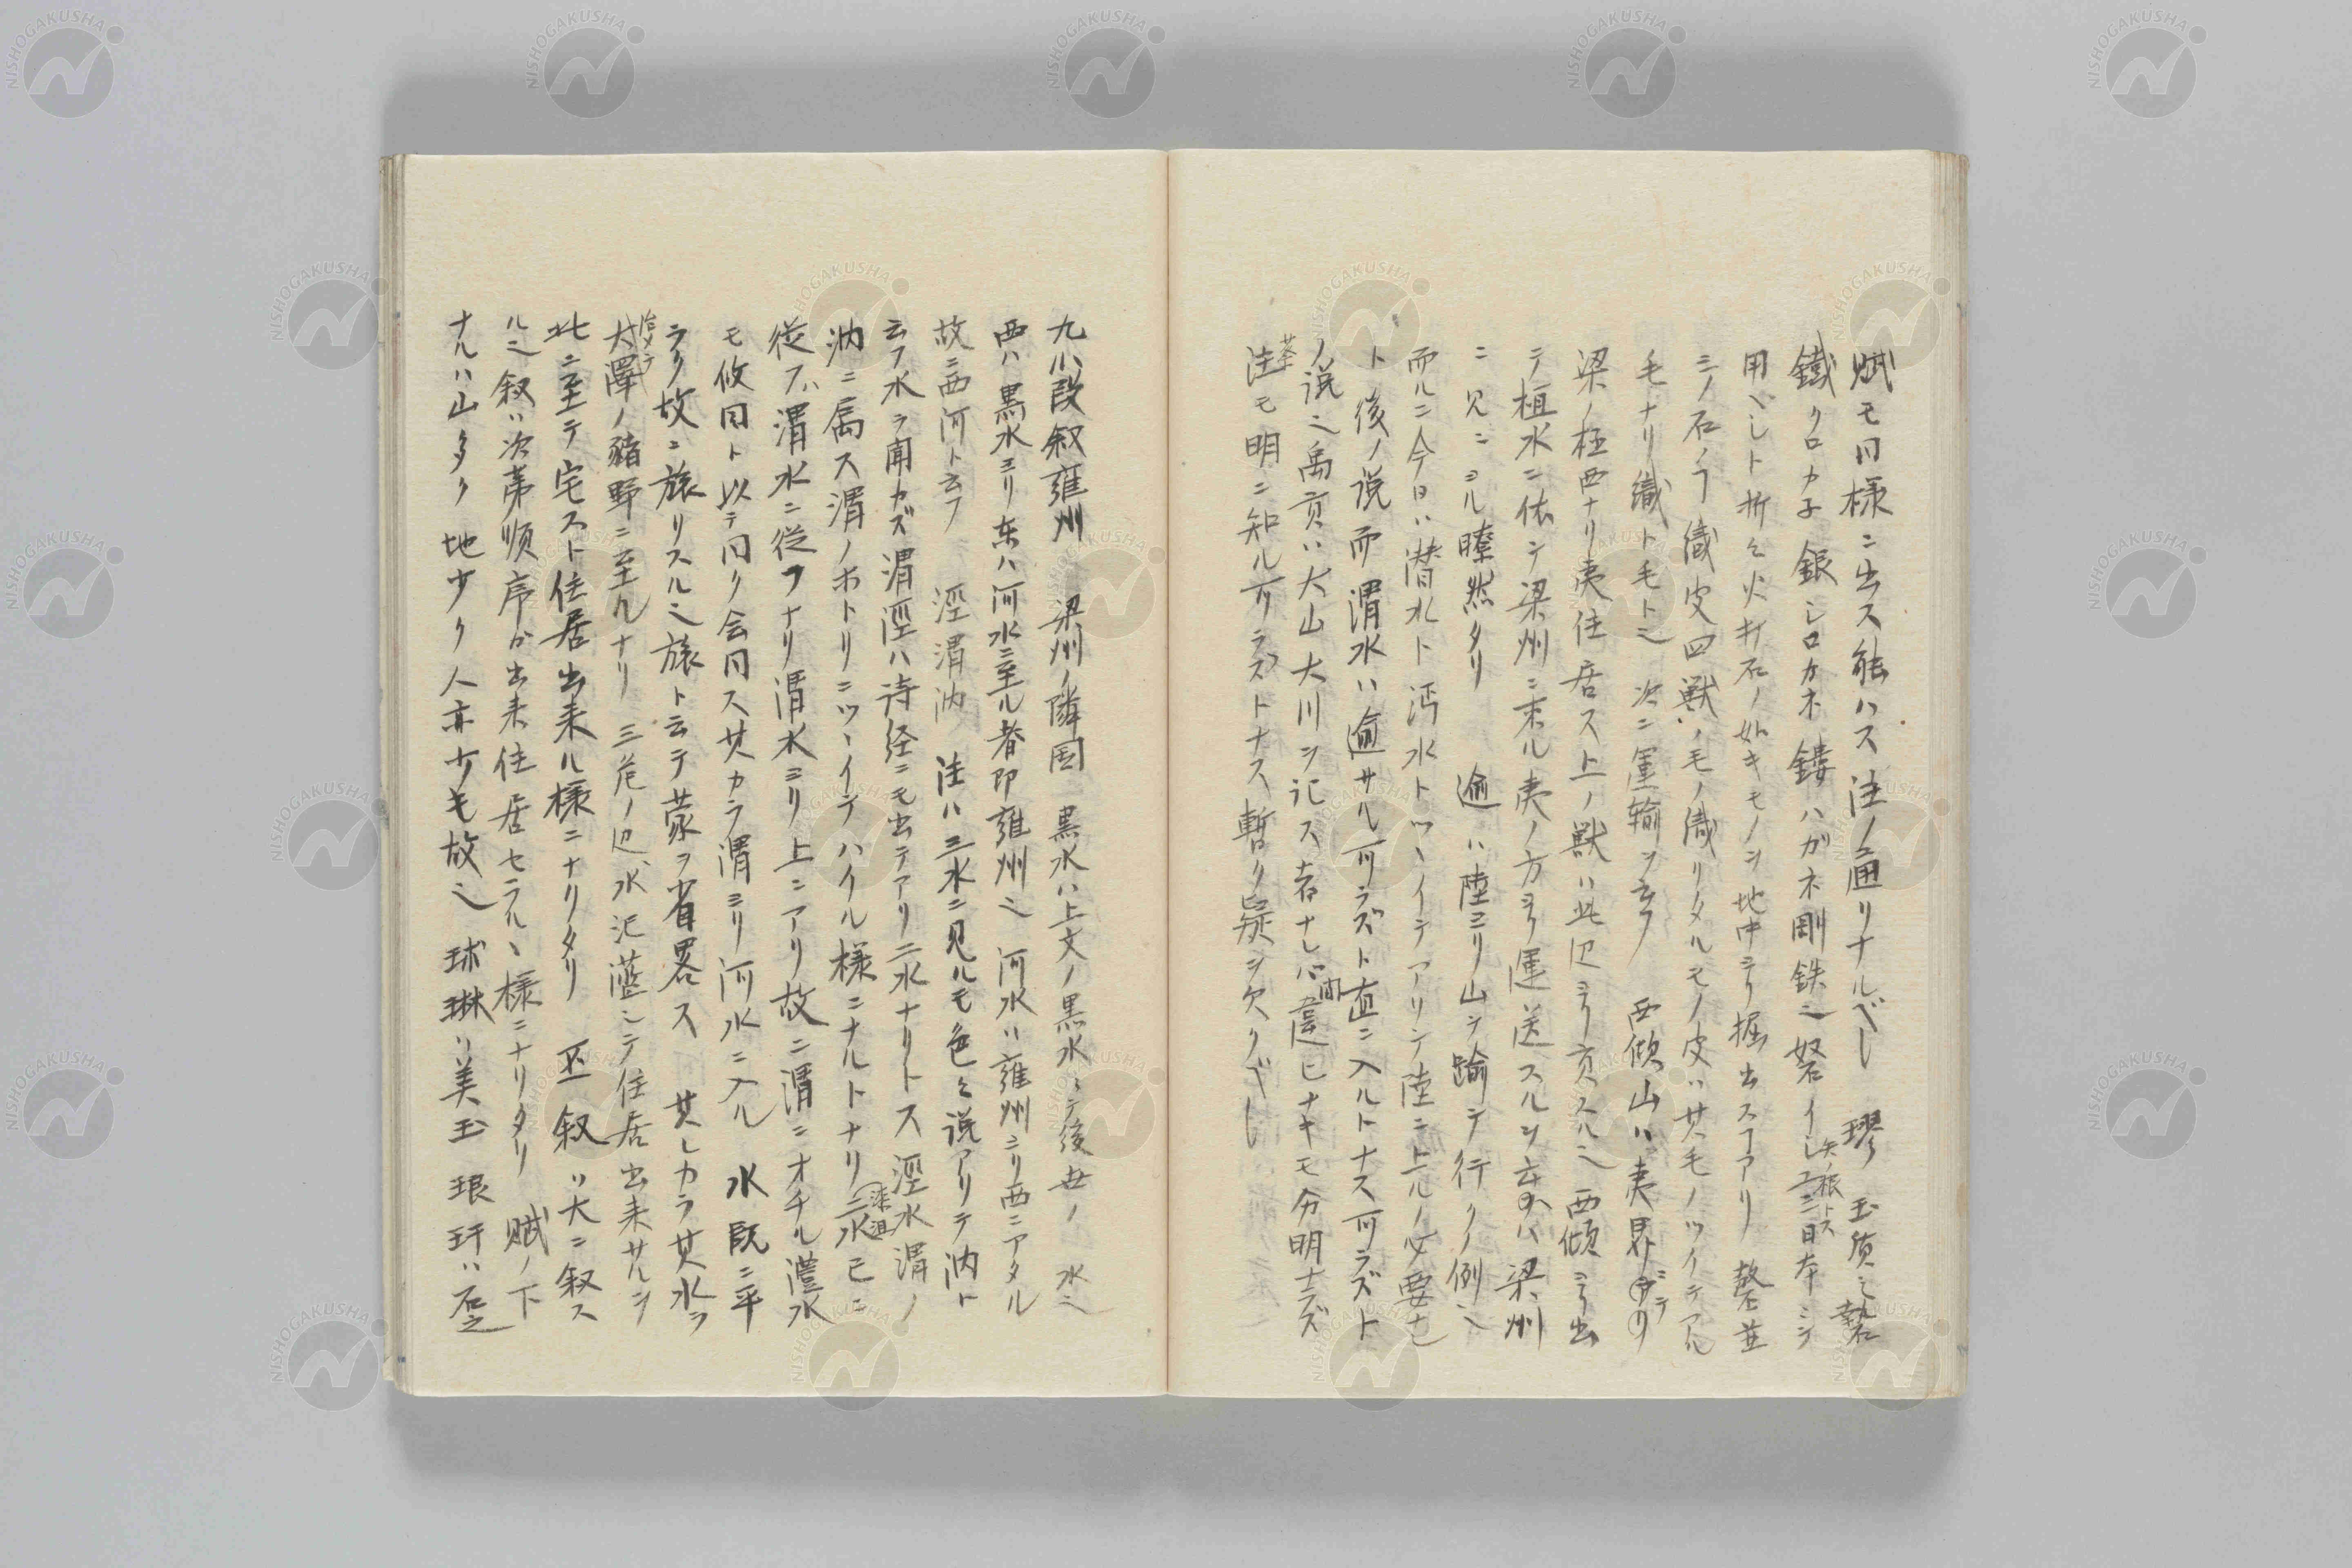 賦モ同様ニ出ス能ハス注ノ通リナルベし 璆 玉質ミ
鐵クロカ子銀シロカネ鏤ハガネ剛鉄ミ砮イしユミ日本ミテ
矢ノ根トス
用ベしト折ミ火打石ノ如キモノヲ地中ヨリ掘出スヿアリ 磬並
ミノ石ノヿ織皮四獣ノ毛ノ織リタルモノ皮ハ其毛ノツイテアル
毛ナリ織ト毛トミ 次ニ運輸ヲ云フ 西傾山ハ夷界
梁ノ極西ナリ夷住居ス上ノ獣ハ此辺ヨリ貢スルミ西傾ヨリ出
テ桓水ニ依テ梁州ニ来ル夷ノ方ヨリ運送スルヲ云ハ梁州
ニ見ニヨル瞭然タリ 逾ハ陸ヨリ山ヲ踰テ行クノ例ミ
而ルニ今日ハ潜水ト沔水トツヽイテアリテ陸ニ上ルノ必要
ト後ノ説而渭水ハ逾サル可ラズト直ニ入ルトナス可ラズト
ノ説ミ禹貢ハ大山大川ヲ記ス者ナレバ間違ヒナキモ分明ナラズ
注モ明ニ知ル可ラズトナス暫ク疑ヲ欠クベし
九小段叙雍州 梁州ノ隣国 黒水ハ上文ノ黒水ミテ後世ノ 水ミ
西ハ黒水ヨリ東ハ河水ニ至ル者即雍州ミ 河水ハ雍州ヨリ西ニアタル
故ニ西河ト云フ 涇渭汭 注ハ三水ニ見ルモ色ミ説アリテ汭ト
云フ水ヲ聞カズ渭涇ハ詩経ニモ出テアリ二水ナリトス涇水渭ノ
汭ニ属ス渭ノホトリニツヽイテハクル様ニナルトナリ二水已ニ
漆沮
従フハ渭水ニ従フナリ渭水ヨリ上ニアリ故ニ渭ニオチル灃水
モ攸同ト以テ同ク会同ス其カラ渭ヨリ河水ニ入ル 水既ニ平
ラク故ニ旅リスルミ旅ト云テ蒙ヲ省畧ス 其レカラ其水ヲ
大澤ノ豬野ニ至ルナリ 三危ノ辺ハ水氾濫シテ住居出来サルヲ
此ニ至テ宅スト住居出来ル様ニナリタリ 丕叙ハ大ニ叙ス
ルミ叙ハ次第順序が出来住居セラルヽ様ニナリタリ 賦ノ下
ナルハ山多ク地少ク人亦少キ故ミ 球琳ハ美玉 琅玕ハ石之